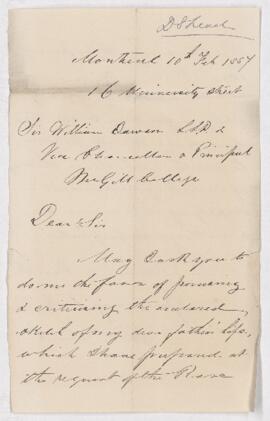 D S Leach
Montreal 10th Feb 1887
16 University Street
Sir William Dawson LLD &
Vice Chancellor & Principal
McGill College
Dear Sir
May I ask you to
do me the favor of perusing
& criticising the enclosed
sketch of my dear father's life,
which I have prepared at
the request of the